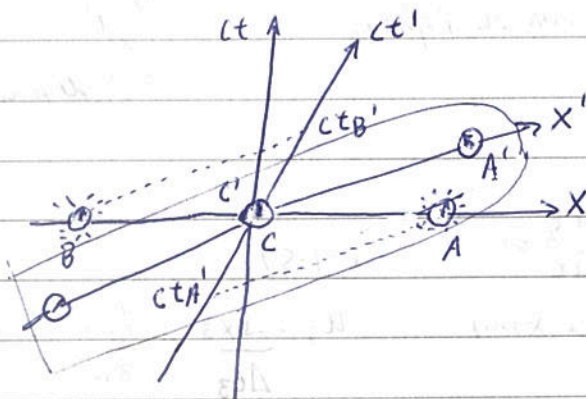 ct
ct'
ctB'
X'
A'
C'
X
B
C
A
ctA'